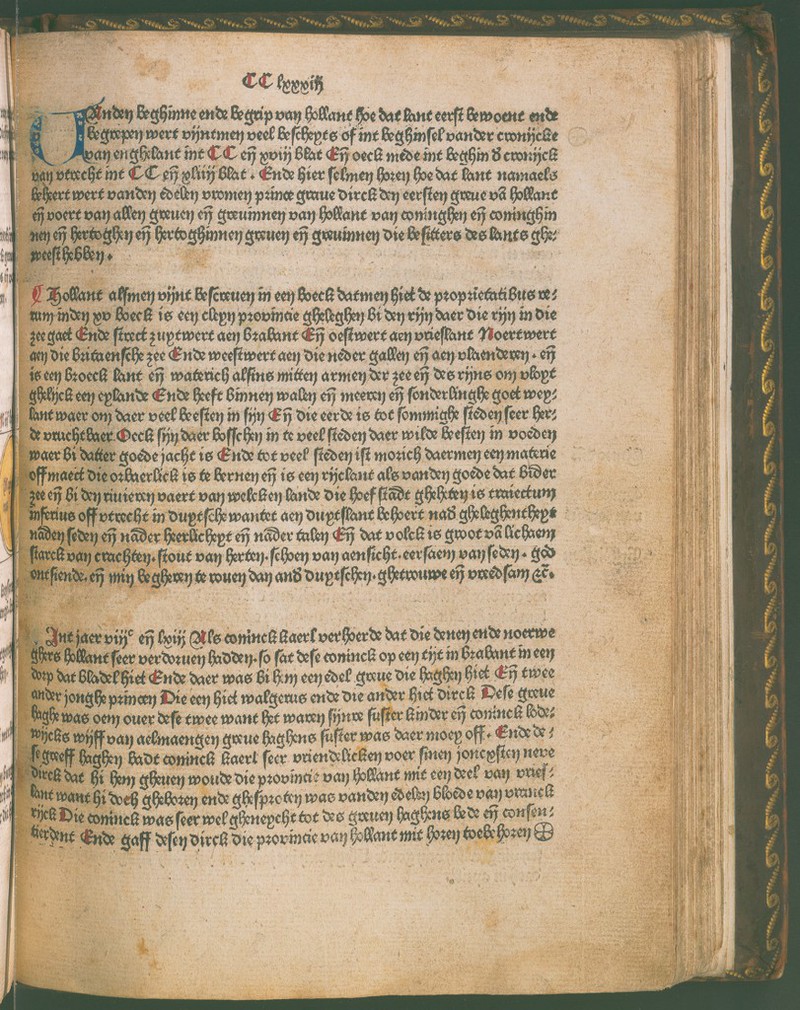 CC lxxxiij
VAnden beghinne ende begrip van hollant hoe dat lant eerst bewoent ende
begrepen wert vijntmen veel bescheyts of int beghinsel vander cronijcke
van enghelant int CC eñ xviij blat Eñ oeck mede int beghin đ cronijck
van vtrecht int CC eñ xliiij blat. Ende hier selmen horen hoe dat lant namaels
beheert wert vanden edelen vromen prince graue dirck den eersten greue vā hollant
eñ voert van allen greuen eñ greuinnen van hollant van coninghen eñ coninghin
nen eñ hertoghen eñ hertoghinnen greuen eñ greuinnen die besitters des lants ghe⸗
weest hebben.
¶ Hollant alsmen vijnt bescreuen in een boeck datmen hiet de proprietatibus re⸗
rum inden xv boeck is een cleyn prouincie gheleghen bi den rijn daer die rijn in die
zee gaet Ende strect zuytwert aen brabant Eñ oestwert aen vrieslant Noertwert
aen die britaensche zee Ende weestwert aen die neder gallen eñ aen vlaenderen. eñ
is een broeck lant eñ waterich alsins mitten armen der zee eñ des rijns om vloyt
ghelijck een eylande Ende heeft binnen walen eñ meeren eñ sonderlinghe goet wey⸗
lant waer om daer veel beesten in sijn Eñ die eerde is tot sommighe steden seer her⸗
de vruchtbaer Oeck sijn daer bosschen in te veel steden daer wilde beesten in voeden
waer bi datter goede jacht is Ende tot veel steden ist morich daermen een materie
off maect die orbaerlick is te bernen eñ is een rijclant als vanden goede dat bider
zee eñ bi den riuieren vaert van welcken lande die hoef stadt ghehten is traiectum
inferius off vtrecht in duytsche wantet aen duytslant behoert nað gheleghentheyt
nāden seden eñ nāder heerlicheyt eñ nāder talen Eñ dat volck is groot vā lichaem
starck van crachten. stout van herten. schoen van aensicht. eersaem van seden. god
ontsiende. eñ min begheren te rouen dan and duytschen. ghetrouwe eñ vreedsam ⁊c.
Int jaer viijc eñ lxiij Als coninck kaerl verhoerde dat die denen ende noerwe
ghers hollant seer verdoruen hadden. so sat dese coninck op een tijt in brabant in een
dorp dat bladel hiet Ende daer was bi hem een edel greue die haghen hiet Eñ twee
ander jonghe princen Die een hiet walgerus ende die ander hiet dirck Dese greue
haghe was oem ouer dese twee want het waren sijnre suster kinder eñ coninck lode⸗
wijcks wijff van aelmaengen greue haghens suster was daer moey off. Ende de⸗
se greeff haghen badt coninck kaerl seer vriendelicken voer sinen joncxsten neue
dirck dat hi hem gheuen woude die prouincie van hollant mit een deel van vries⸗
lant want hi doch gheboren ende ghesproten was vanden edelen bloede van vranck
rijck Die coninck was seer wel gheneycht tot des greuen haghens bede eñ consen⸗
tierdent Ende gaff desen dirck die prouincie van hollant mit horen toebehoren